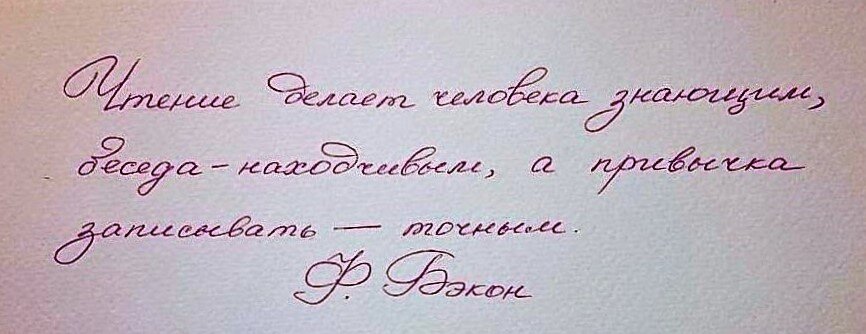 Чтение делает человека знающим,
беседа - находчивым, а привычка
записывать — точным.
Ф. Бэкон